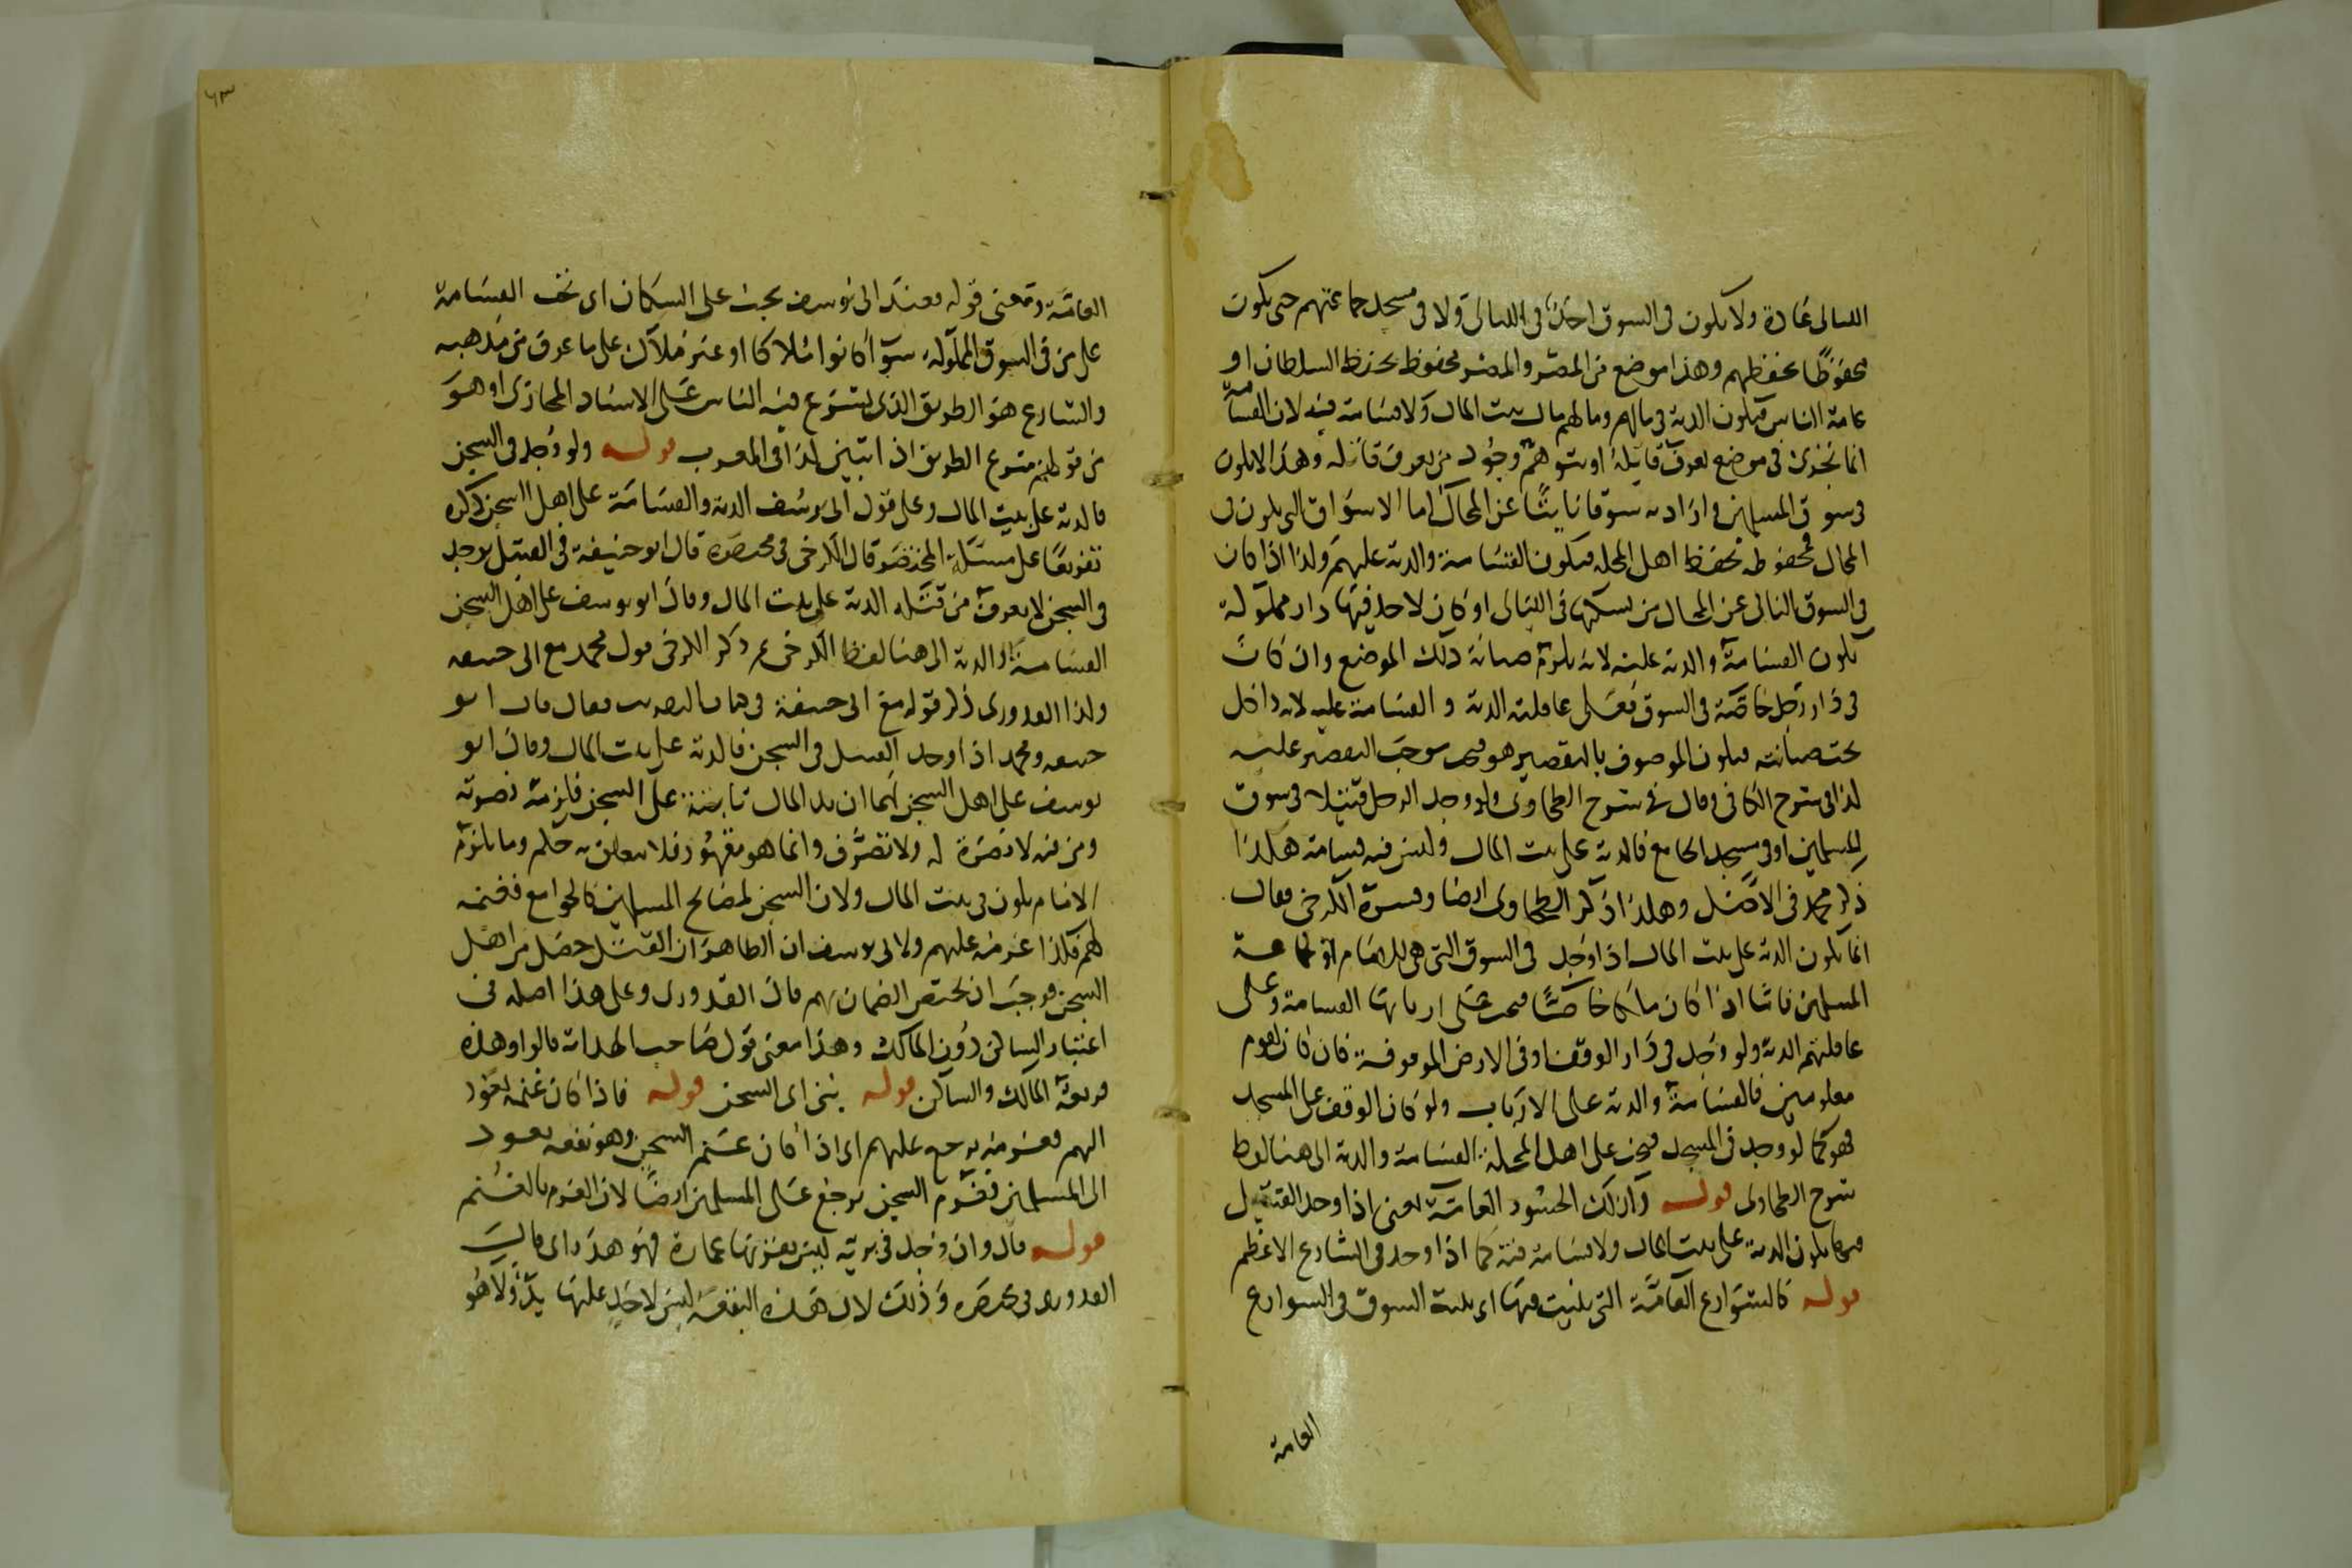 الليالى عادة ولا يكون فى السوق احد فى الليالى ولا فى مسجد جماعتهم حتى يكون
محفوظًا بحفظهم وهذا موضع من المصر والمصر محفوظ بحفظ السلطان او
عامة الناس فيكون الدية فى مالهم ومالهم مال بيت المال ولا قسامة فيه لان القسامة
انما تجرى فى موضع يعرف قاتله او يتوهم وجود من يعرف قاتله وهذا لا يكون
فى سوق المسلمين واراد به سوقا نائيًا عن المحال اما الاسواق التى يكون فى
المحال محفوظة بحفظ اهل المحلة فيكون القسامة والدية عليهم ولذا اذا كان
فى السوق النائى عن المحال من يسكنها فى الليالى او كان لاحد فيها دار مملوكة
يكون القسامة والدية عليه لانه يلزمه صيانة ذلك الموضع وان كانت
فى دار رجل خاصة فى السوق فعلى عاقلته الدية والقسامة عليه لانه داخل
تحت صيانته فيكون الموصوف بالتقصير هو فموجب التقصير عليه
كذا فى شرح الكافى وقال فى شرح الطحاوى ولو وجد الرجل قتيلا فى سوق
المسلمين او فى مسجد الجامع فالدية على بيت المال وليس فيه قسامة هكذا
ذكر محمد فى الاصل وهكذا ذكر الطحاوى ايضا وفسره الكرخى فقال
انما يكون الدية على بيت المال اذا وجد فى السوق التى هى للامام او لجماعة
المسلمين فاما اذا كان ملكا خاصًا فيجب على اربابها القسامة وعلى
عاقلتهم الدية ولو وجد فى دار الوقف او فى الارض الموقوفة فان كان لقوم
معلومين فالقسامة والدية على الارباب ولو كان الوقف على المسجد
فهو كما لو وجد فى المسجد فيجب على اهل المحلة القسامة والدية الى هنا لفظ
شرح الطحاوى قوله وكذلك الجسور العامة يعنى اذا وجد القتيل
فيها يكون الدية على بيت المال ولا قسامة فيه كما اذا وجد فى الشارع الاعظم
قوله كالشوارع العامة التى بنيت فيها اى بنية السوق فى الشوارع
العامة
٦٣
العامة ومعنى قوله وعند ابى يوسف يجب على السكان اى تجب القسامة
على من فى السوق المملوكة سوآ كانوا ملاكا او غير ملاك على ما عرف من مذهبه
والشارع هو الطريق الذى يشرع فيه الناس على الاسناد المجازى او هو
من قولهم شرع الطريق اذا تبين كذا فى المغرب قوله ولو وجد فى السجن
فالدية على بيت المال وعلى قول ابى يوسف الدية والقسامة على اهل السجن ذكره
تفريعًا على مسئلة المختصر قال الكرخى فى مختصره قال ابو حنيفة فى القتيل يوجد
فى السجن لا يعرف من قتله الدية على بيت المال وقال ابو يوسف على اهل السجن
القسامة والدية الى هنا لفظ الكرخى ثم ذكر الكرخى قول محمد مع ابى حنيفه
ولذا القدورى ذكر قوله مع ابى حنيفة فى كتاب التقريب فقال قال ابو
حنيفه ومحمد اذا وجد القتيل فى السجن فالدية على بيت المال وقال ابو
يوسف على اهل السجن لهما ان يد المال ثابتة على السجن فلزمه نصرته
ومن فيه لا نصرة له ولا تصرف وانما هو مقهور فلا يتعلق به حكم وما يلزم
الامام يكون فى بيت المال ولان السجن لمصالح المسلمين كالجوامع فغنمه
لهم فكذا غرمه عليهم ولابى يوسف ان الظاهر ان القتل حصل من اهل
السجن فوجب ان يختص الضمان بهم قال القدورى وعلى هذا اصله فى
اعتبار الساكن دون المالك وهذا معنى قول صاحب الهداية قالوا وهذه
فريعة المالك والساكن قوله بنى اى السجن قوله فاذا كان غنمه يعود
اليهم فغرمه يرجع عليهم اى اذا كان غنم السجن وهو نفعه يعود
الى المسلمين فغرم السجن يرجع على المسلمين ايضًا لان الغرم بالغنم
قوله قال وان وجد فى برية ليس بقربها عمارة فهو هدر اى قال
القدورى فى مختصره وذلك لان هذه البقعة ليس لاحد عليها يد ولا هو